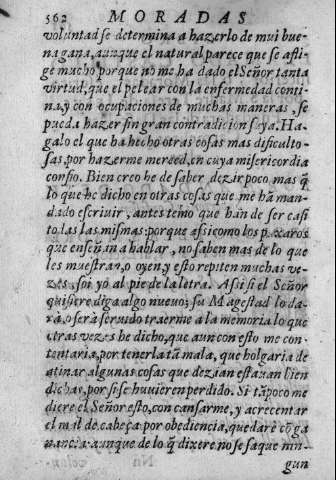 562 MORADAS
voluntad se determina a hazerlo de mui bue-
na gana, aunque el natural parece que se afli-
ge mucho porque no me ha dado el Señor tanta
virtud, que el pelear con la enfermedad conti-
na, y con ocupaciones de muchas maneras, se
pueda hazer sin gran contradicion suya. Ha-
galo el que ha hecho otras cosas mas dificulto-
sas, por hazerme merced, en cuya misericordia
confio. Bien creo he de saber dezir poco mas q̃
lo que he dicho en otras cosas que me hã man-
dado escriuir, antes temo que han de ser casi
todas las mismas: porque assi como los paxaros
que enseñan a hablar, no saben mas de lo que
les muestran, o oyen, y esto repiten muchas ve-
zes, soi yo al pie de la letra. Assi si el Señor
quisiere diga algo nueuo, su Magestad lo da-
rà, o serà seruido traerme a la memoria lo que
otras vezes he dicho, que aun con esto me con-
tentaria, por tenerla tã mala, que holgaria de
atinar algunas cosas que dezian estauan bien
dichas, por si se huuieren perdido. Si tãpoco me
diere el Señor esto, con cansarme, y acrecentar
el mal de cabeça por obediencia, quedarè cõ ga
nancia, aunque de lo q̃ dixere no se saque nin-
gun